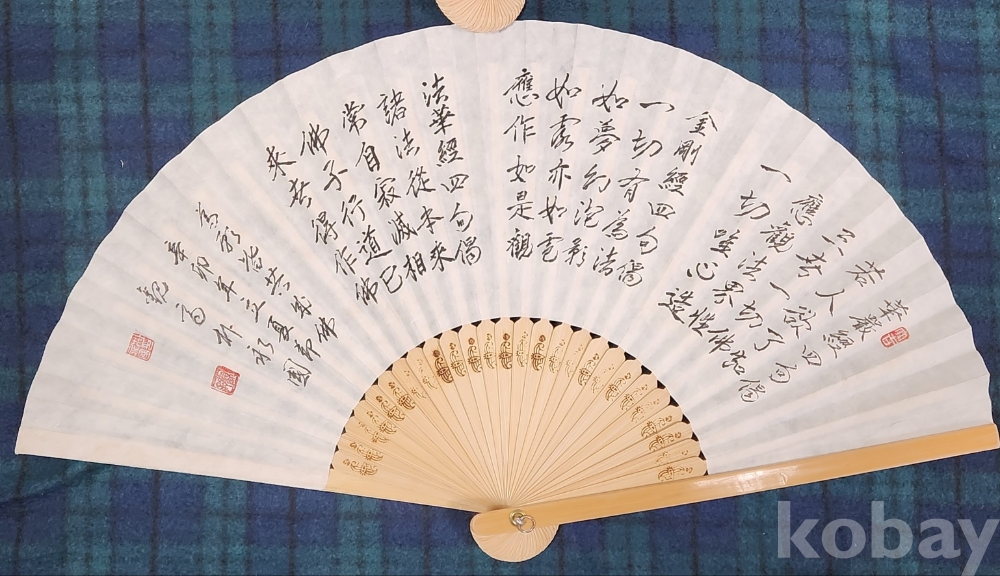 華嚴經四句偈
若人欲了知
三世一切佛
應觀法界性
一切唯心造
金剛經四句偈
一切有為法
如夢幻泡影
如露亦如電
應作如是觀
法華經四句偈
諸法從本來
常自寂滅相
佛子行道已
來世得作佛
皆共成佛
辛卯年立夏
kobay